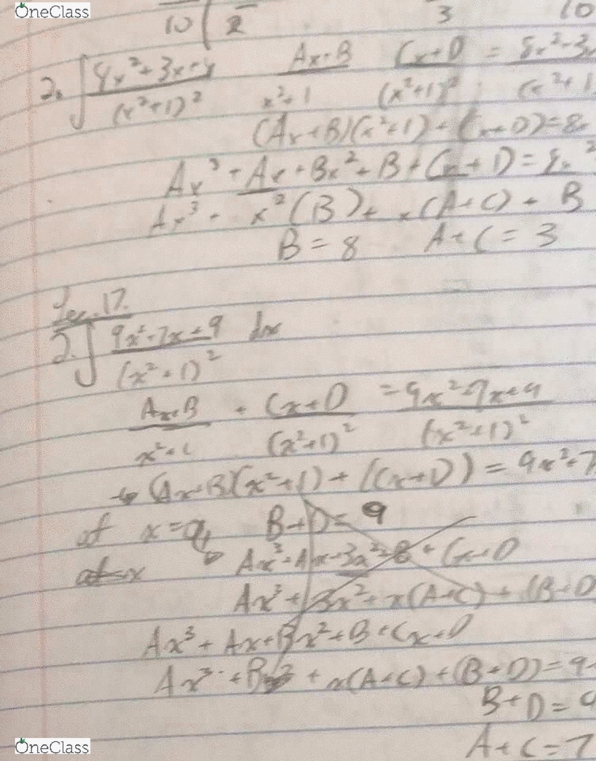 OneClass
10 2 3 10
2. ∫ 8x²+3x+ / (x²+1)² Ax+B / x²+1 Cx+D / (x²+1)² = 8x²-3x / (x²+1
(Ax+B)(x²+1)+(Cx+D)=8x
Ax³+Ax+Bx²+B+Cx+D=8x²
Ax³+ x²(B)+ x(A+C)+ B
B=8 A+C=3
Lec. 17.
2. ∫ 9x²-7x+9 / (x²+1)² dx
Ax+B / x²+1 + Cx+D / (x²+1)² = 9x²-7x+9 / (x²+1)²
↳ (Ax+B)(x²+1)+((x+D)=9x²-7
at x=0, B+D=9
at x Ax³+Ax+Bx²+B+Cx+D
Ax³+Bx²+x(A+C)+(B+D
Ax³+Ax+Bx²+B+Cx+D
Ax³+Bx²+x(A+C)+(B+D)=9
B+D=9
OneClass A+C=7